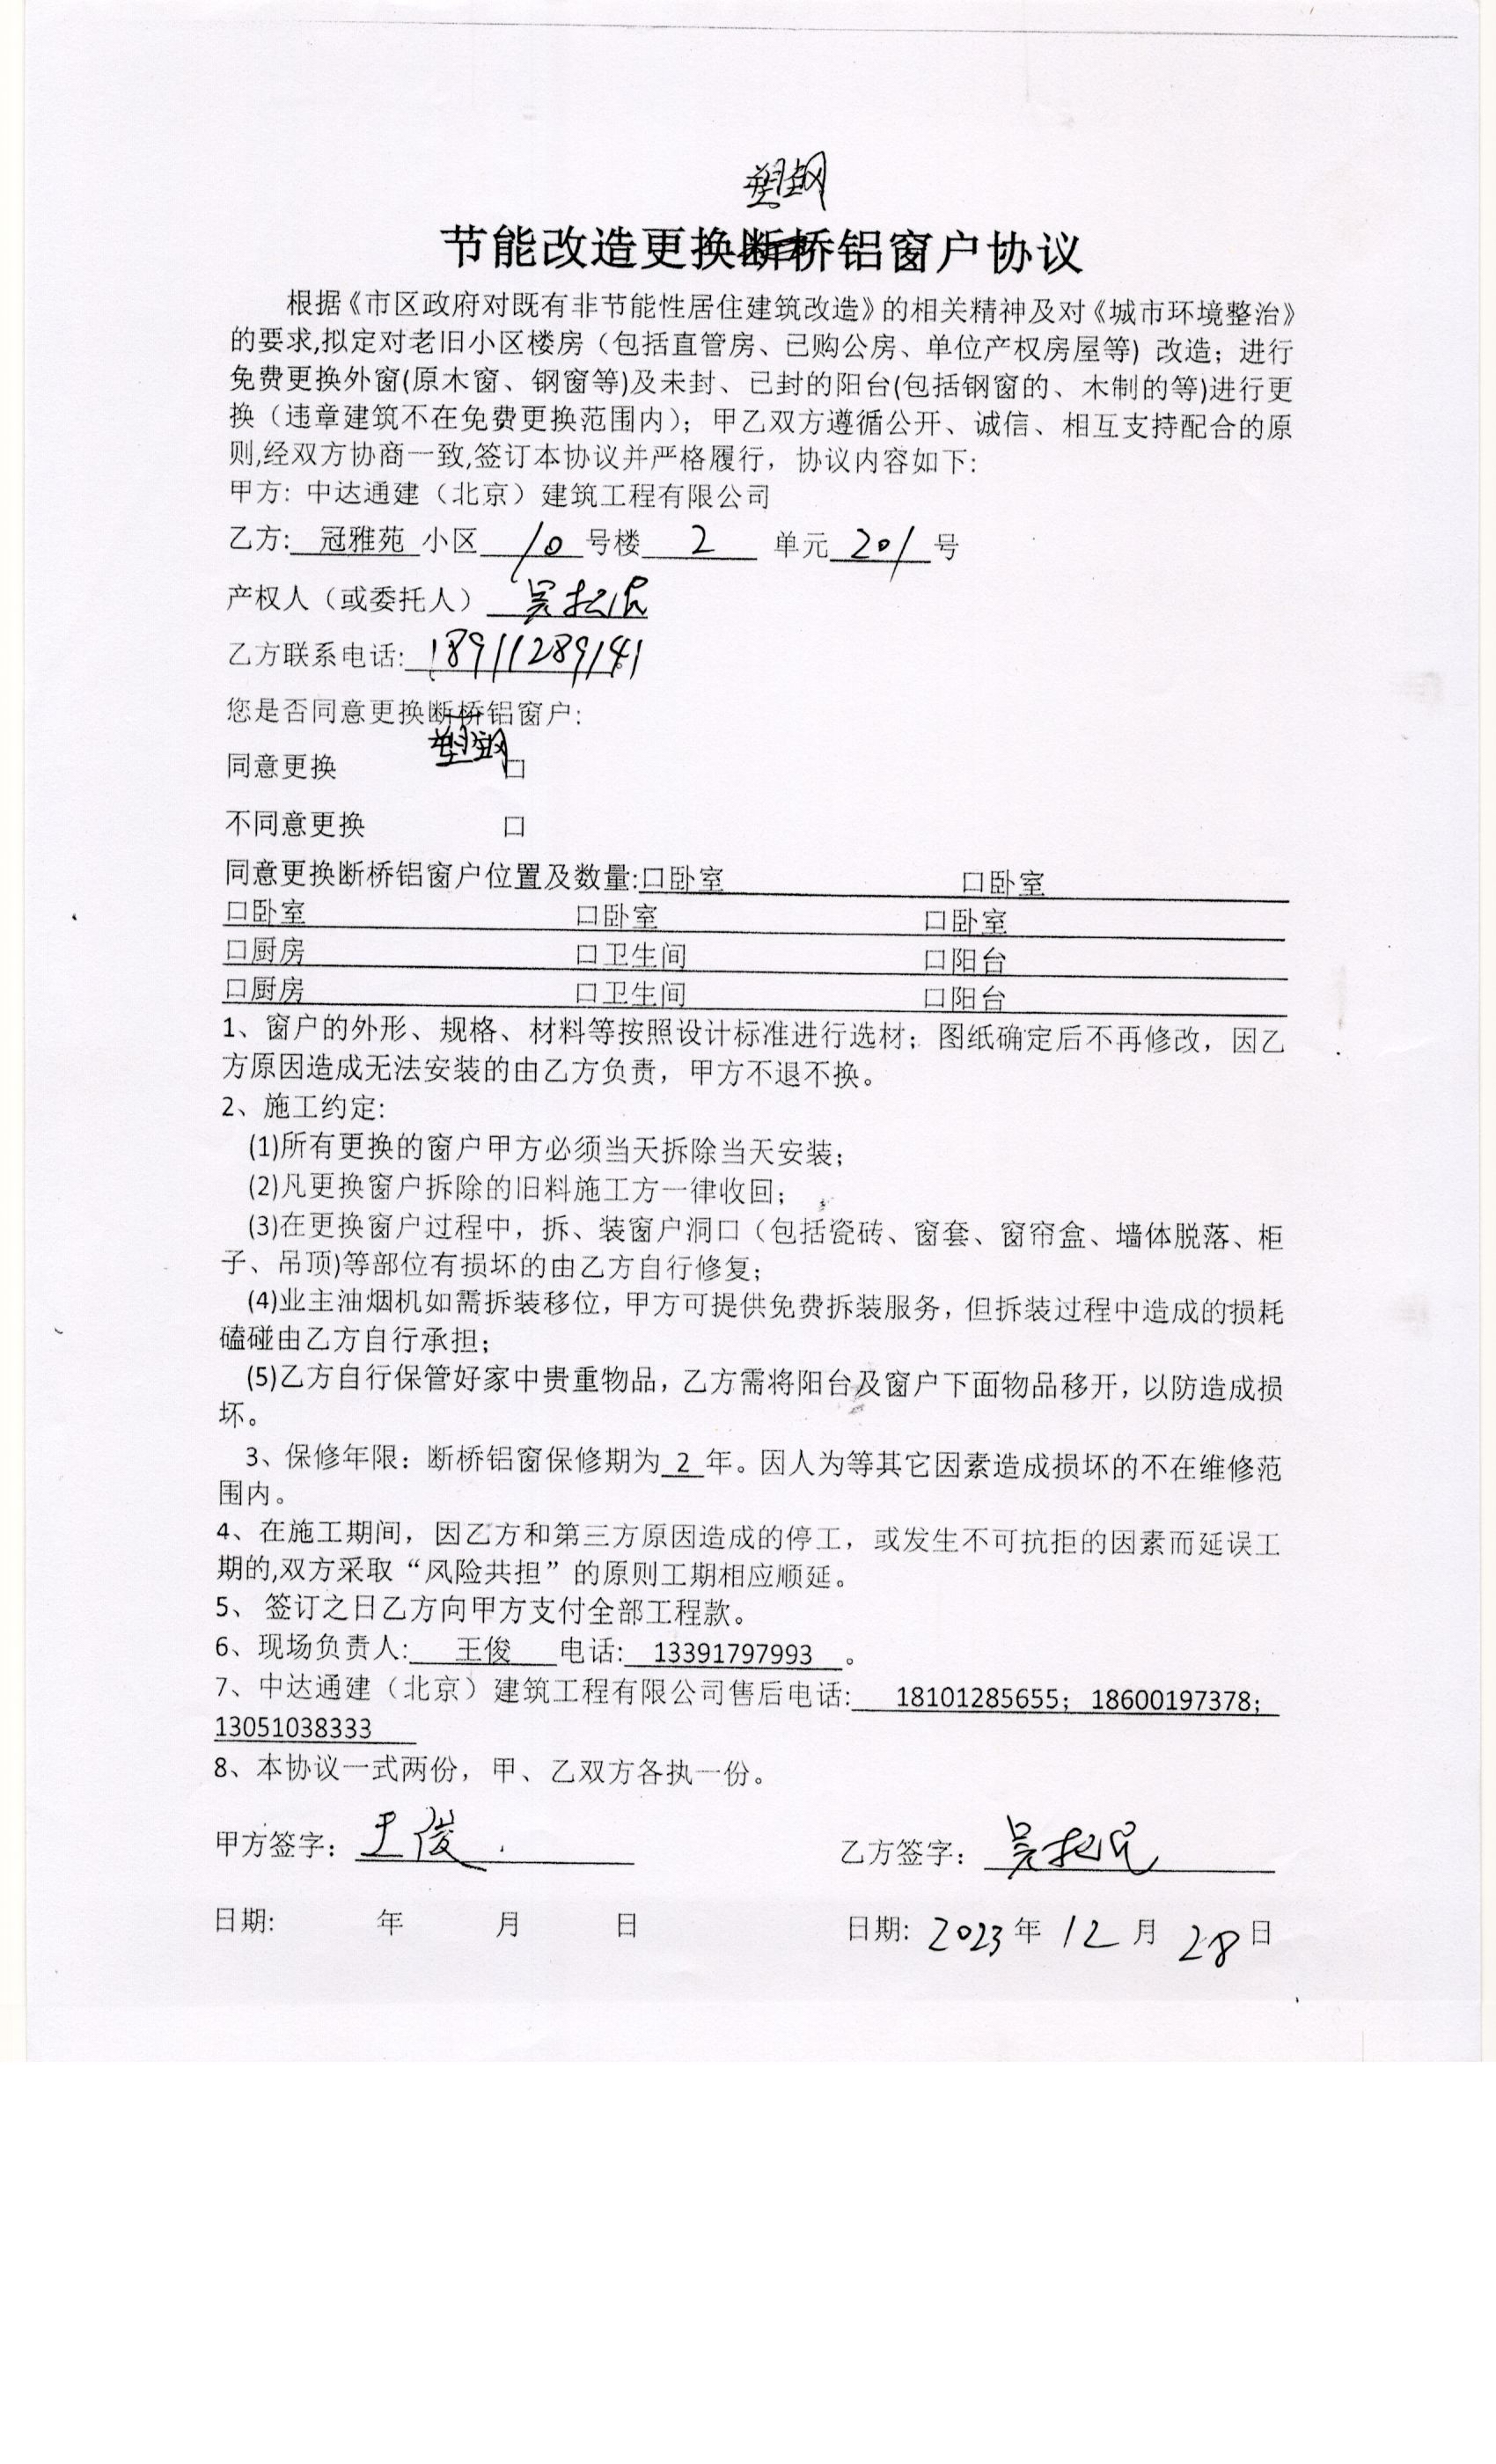 塑钢
节能改造更换断桥铝窗户协议
根据《市区政府对既有非节能性居住建筑改造》的相关精神及对《城市环境整治》
的要求,拟定对老旧小区楼房（包括直管房、已购公房、单位产权房屋等）改造；进行
免费更换外窗(原木窗、钢窗等)及未封、已封的阳台(包括钢窗的、木制的等)进行更
换（违章建筑不在免费更换范围内)；甲乙双方遵循公开、诚信、相互支持配合的原
则,经双方协商一致,签订本协议并严格履行，协议内容如下:
甲方: 中达通建（北京）建筑工程有限公司
乙方: 冠雅苑 小区 10 号楼 2 单元 201 号
产权人（或委托人） 吴松
乙方联系电话: 18911289141
您是否同意更换断桥铝窗户:
塑钢
同意更换 口
不同意更换 口
同意更换断桥铝窗户位置及数量:口卧室 口卧室
口卧室 口卧室 口卧室
口厨房 口卫生间 口阳台
口厨房 口卫生间 口阳台
1、窗户的外形、规格、材料等按照设计标准进行选材；图纸确定后不再修改，因乙
方原因造成无法安装的由乙方负责，甲方不退不换。
2、施工约定:
(1)所有更换的窗户甲方必须当天拆除当天安装；
(2)凡更换窗户拆除的旧料施工方一律收回；
(3)在更换窗户过程中，拆、装窗户洞口（包括瓷砖、窗套、窗帘盒、墙体脱落、柜
子、吊顶)等部位有损坏的由乙方自行修复；
(4)业主油烟机如需拆装移位，甲方可提供免费拆装服务，但拆装过程中造成的损耗
磕碰由乙方自行承担；
(5)乙方自行保管好家中贵重物品，乙方需将阳台及窗户下面物品移开，以防造成损
坏。
3、保修年限：断桥铝窗保修期为 2 年。因人为等其它因素造成损坏的不在维修范
围内。
4、在施工期间，因乙方和第三方原因造成的停工，或发生不可抗拒的因素而延误工
期的,双方采取“风险共担”的原则工期相应顺延。
5、 签订之日乙方向甲方支付全部工程款。
6、现场负责人: 王俊 电话: 13391797993 。
7、中达通建（北京）建筑工程有限公司售后电话: 18101285655；18600197378；
13051038333
8、本协议一式两份，甲、乙双方各执一份。
甲方签字： 王俊 乙方签字： 吴松
日期: 年 月 日 日期: 2023 年 12 月 28 日